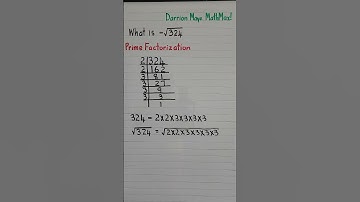 Darrion Mayo MathMax!
What is -√324
Prime Factorization
2|324
2|162
3|81
3|27
3|9
3|3
|1
324 = 2x2x3x3x3x3
√324 = √2x2x3x3x3x3